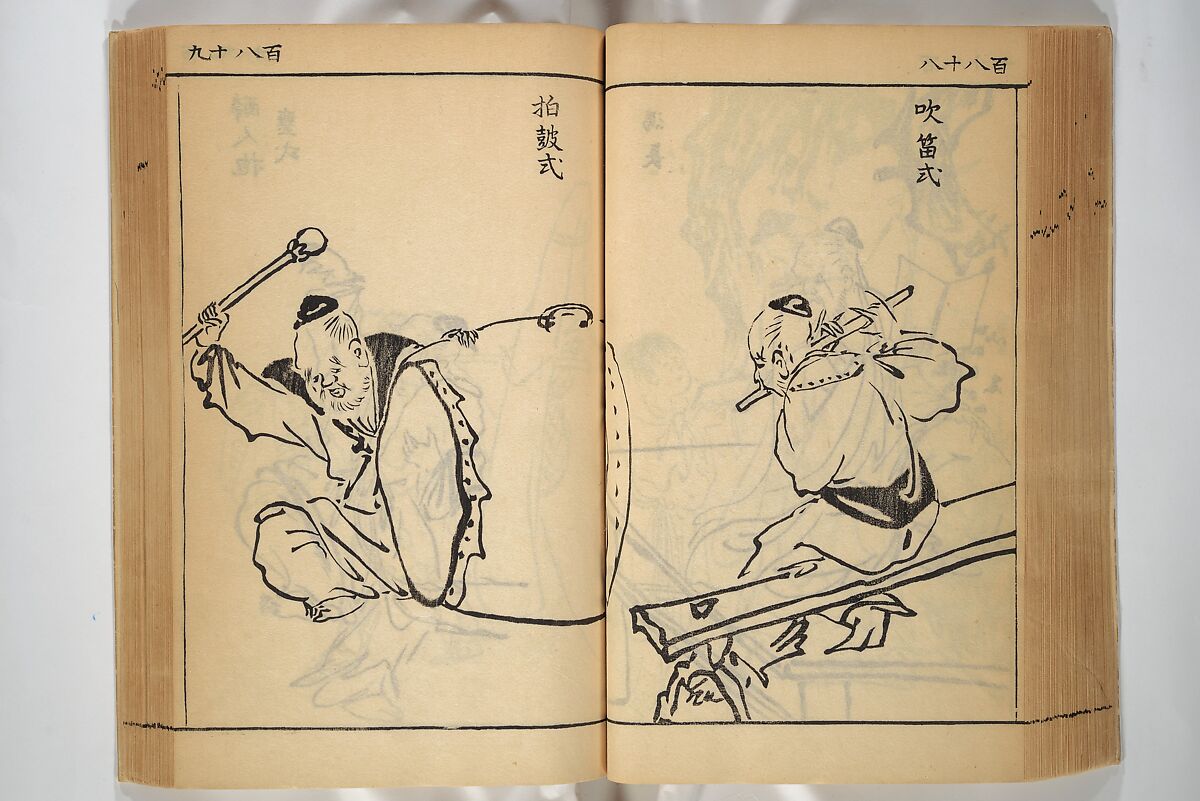 百八十八
吹笛式
百八十九
拍鼓式